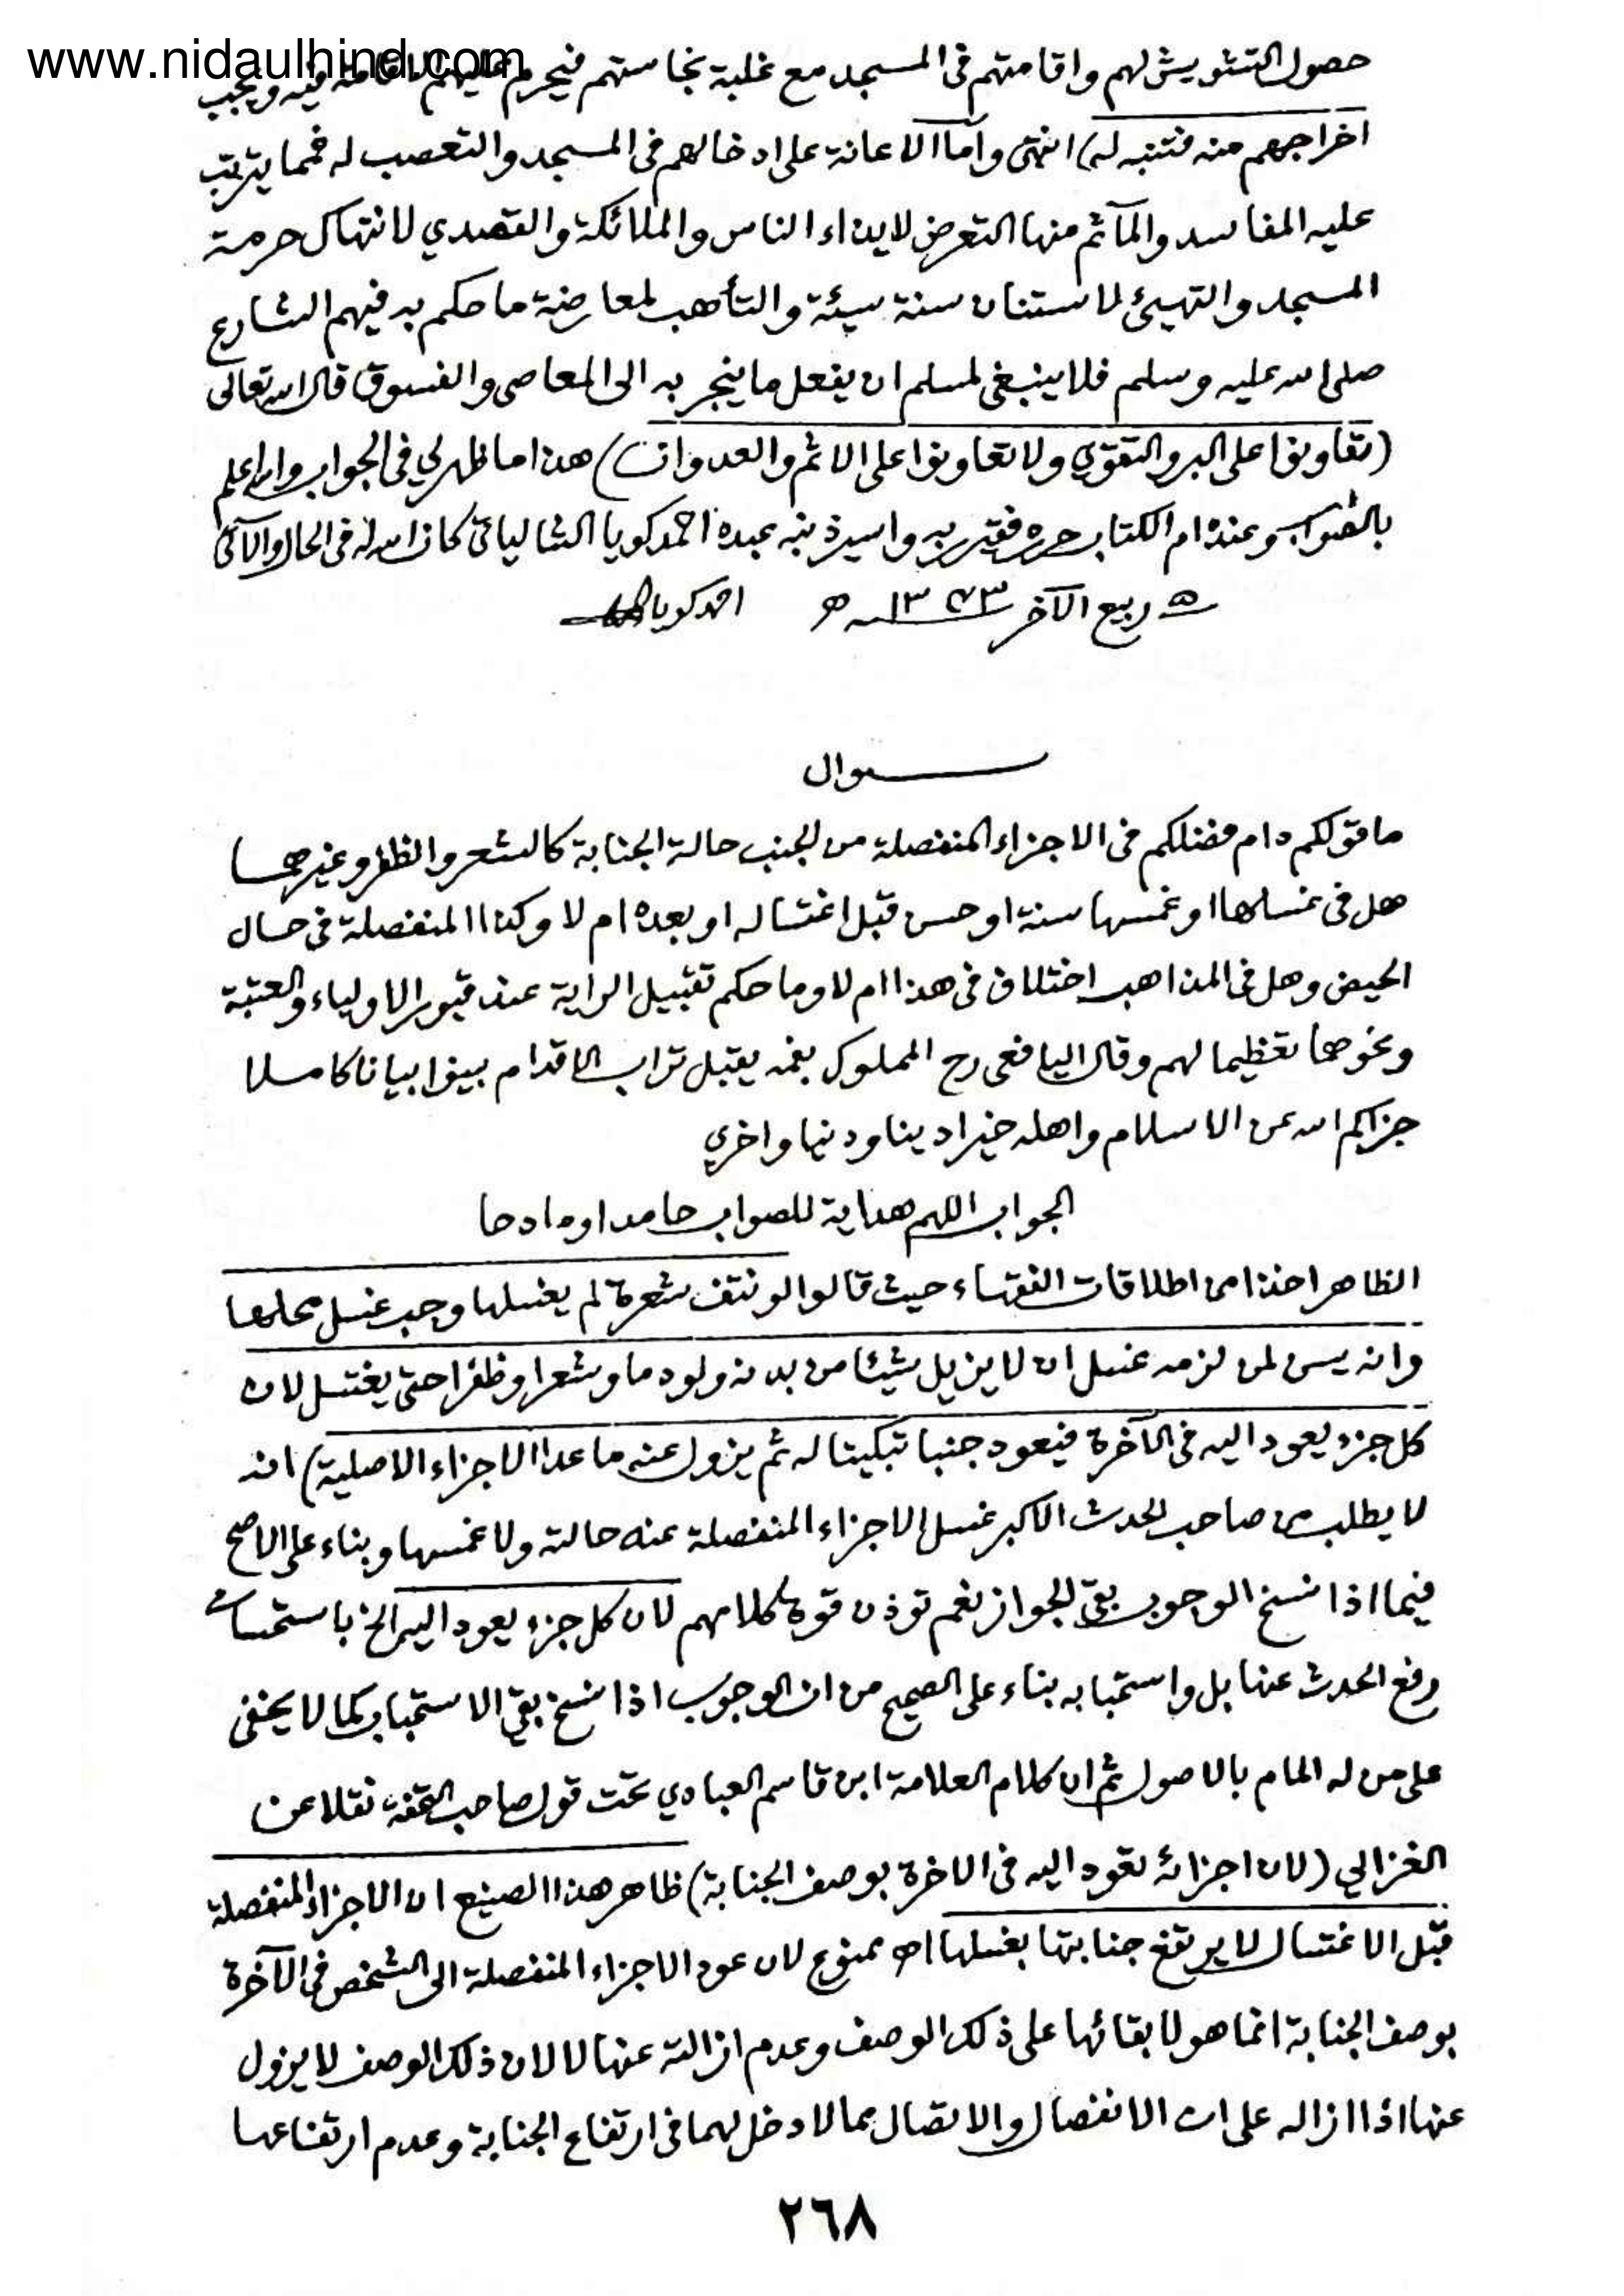 www.nidaulhind.com
حصول التشويش لهم واقامتهم فى المسجد مع غلبة نجاستهم فيحرم عليهم الاقامة فيه ويجب
اخراجهم منه فتنبه له) انتهى واما الاعانة على ادخالهم فى المسجد والتعصب له فمما يترتب
عليه المفاسد والمآثم منها التعرض لايذاء الناس والملائكة والتصدي لانتهاك حرمة
المسجد والتهيئ لاستنان سنة سيئة والتأهب لمعارضة ما حكم به فيهم الشارع
صلى الله عليه وسلم فلا ينبغى لمسلم ان يفعل ما ينجر به الى المعاصى والفسوق قال الله تعالى
(تعاونوا على البر والتقوي ولا تعاونوا على الاثم والعدوان) هذا ما ظهر لي فى الجواب والله اعلم
بالصواب وعنده ام الكتاب حرره فقير ربه واسير ذنبه عبده احمد كويا الشالياتي كان الله له فى الحال والآتي
٥ ربيع الآخر ١٣٧٣ ھ احمد كويا
سوال
ما قولكم دام فضلكم فى الاجزاء المنفصلة من الجنب حالة الجنابة كالشعر والظفر وغيرهما
هل فى غسلها او غمسها سنة او حسن قبل اغتساله او بعده ام لا وكذا المنفصلة فى حال
الحيض وهل فى المذاهب اختلاف فى هذا ام لا وما حكم تقبيل الراية عند قبور الاولياء والعتبة
ونحوها تعظيما لهم وقال اليافعى رح المملوك بفمه يقبل تراب الاقدام بينوا بيانا كاملا
جزاكم الله عن الاسلام واهله خيرا دينا ودنيا واخري
الجواب اللهم هداية للصواب حامدا ومادحا
الظاهر اخذا من اطلاقات الفقهاء حيث قالوا لو نتف شعرة لم يغسلها وجب غسل محلها
وانه يسن لمن لزمه غسل ان لا يزيل شيئا من بدنه ولو دما او شعرا وظفرا حتى يغتسل لان
كل جزء يعود اليه فى الآخرة فيعود جنبا تبكيتا له ثم يزول عنه ما عدا الاجزاء الاصلية) انه
لا يطلب من صاحب الحدث الاكبر غسل الاجزاء المنفصلة عنه حالته ولا غمسها وبناء على الاصح
فيما اذا نسخ الوجوب بقي الجواز نعم توذن قوة كلامهم لان كل جزء يعود اليه الخ باستحسان
رفع الحدث عنها بل واستحبابه بناء على الصحيح من ان الوجوب اذا نسخ بقي الاستحباب كما لا يخفى
على من له المام بالاصول ثم ان كلام العلامة ابن قاسم العبادي تحت قول صاحب التحفة نقلا عن
الغزالي (لان اجزائه تعود اليه فى الاخرة بوصف الجنابة) ظاهر هذا الصنيع ان الاجزاء المنفصلة
قبل الاغتسال لا يرتفع جنابتها بغسلها اھ ممنوع لان عود الاجزاء المنفصلة الى الشخص فى الآخرة
بوصف الجنابة انما هو لابقائها على ذلك الوصف وعدم ازالته عنها لا لان ذلك الوصف لا يزول
عنها اذا ازاله على ان الانفصال والاتصال مما لا دخل لهما فى ارتفاع الجنابة وعدم ارتفاعها
٢٦٨